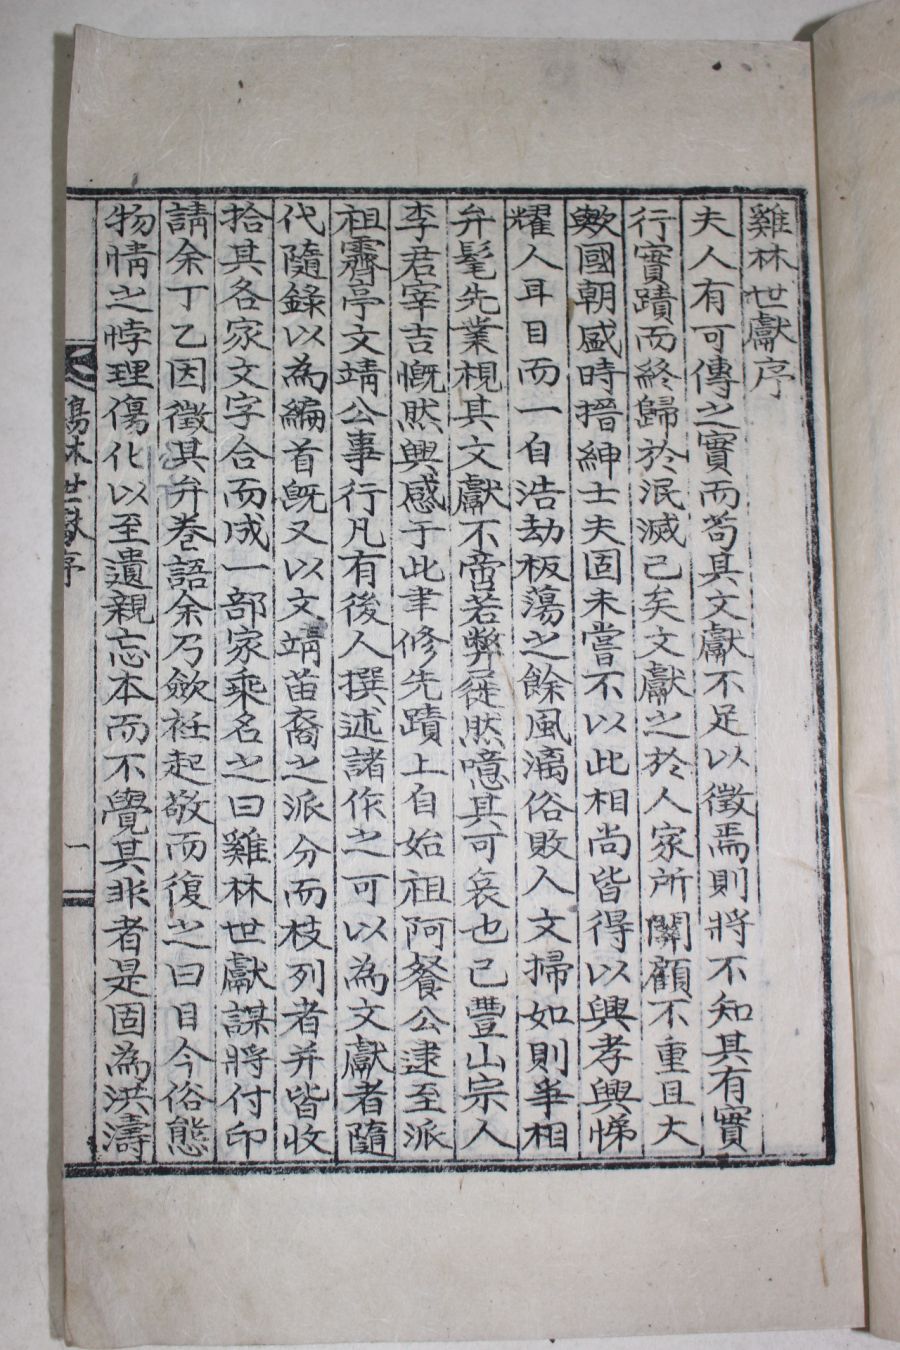 雞林世獻序
夫人有可傳之實而苟其文獻不足以徵焉則將不知其有實
行實蹟而終歸於泯滅已矣文獻之於人家所關顧不重且大
歟國朝盛時搢紳士夫固未嘗不以此相尚皆得以興孝興悌
耀人耳目而一自浩劫板蕩之餘風漓俗敗人文掃如則爭相
弁髦先業視其文獻不啻若弊屣然噫其可哀也已豊山宗人
李君宰吉慨然興感于此聿修先蹟上自始祖阿餐公逮至派
祖霽亭文靖公事行凡有後人撰述諸作之可以為文獻者隨
代隨錄以為編首旣又以文靖苗裔之派分而枝列者并皆收
拾其各家文字合而成一部家乘名之曰雞林世獻謀將付印
請余丁乙因徵其弁巻語余乃斂衽起敬而復之曰目今俗態
物情之悖理傷化以至遺親忘本而不覺其非者是固為洪濤
林世獻序
一